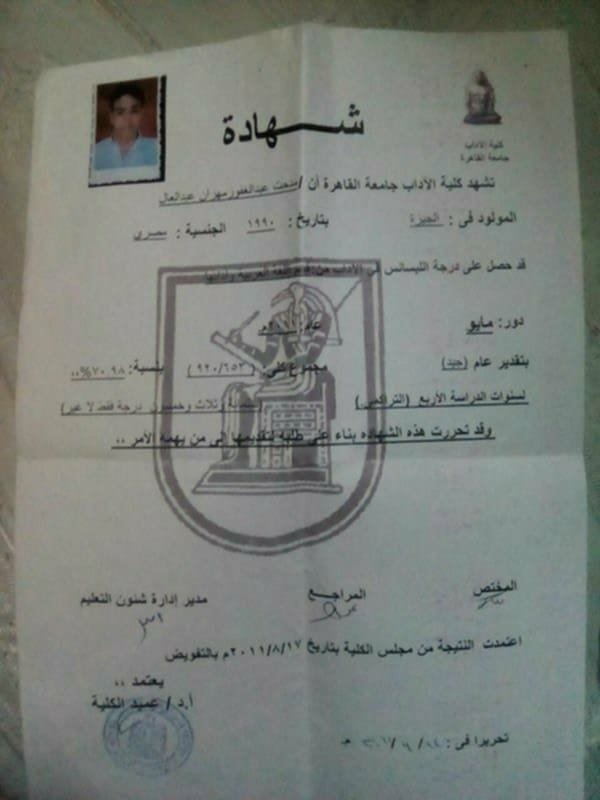 شهادة
كلية الآداب
جامعة القاهرة
تشهد كلية الآداب جامعة القاهرة أن / مدحت عبدالغفور مهران عبدالعال
المولود فى : الجيزة بتاريخ : ١٩٩٠ الجنسية : مصرى
قد حصل على درجة الليسانس فى الآداب من قسم اللغة العربية وآدابها
دور: مايو عام:
بتقدير عام (جيد) مجموع كلى: (٩٢٠/٦٥٣) بنسبة: ٧٠.٩٨%،،
لسنوات الدراسة الأربع (التراكمى) وثلاث وخمسون درجة فقط لا غير)
وقد تحررت هذه الشهاده بناء على طلبه لتقديمها إلى من يهمه الأمر ،،
المختص المراجع مدير إدارة شئون التعليم
اعتمدت النتيجة من مجلس الكلية بتاريخ ٢٠١١/٨/١٧م بالتفويض
يعتمد ،،
أ.د/ عميد الكلية
تحريرا فى :